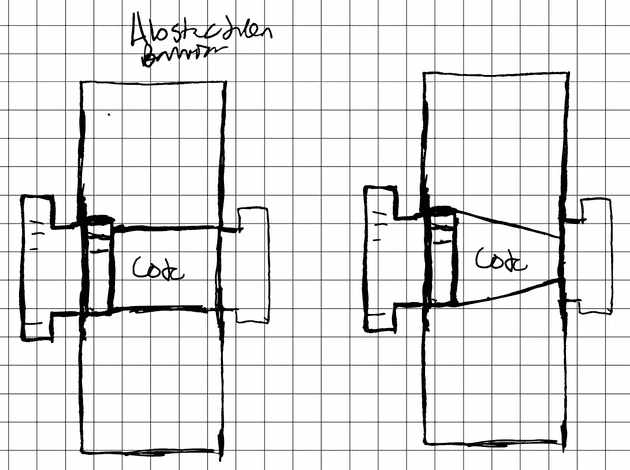 Abstraction
Barrier
Code
Code